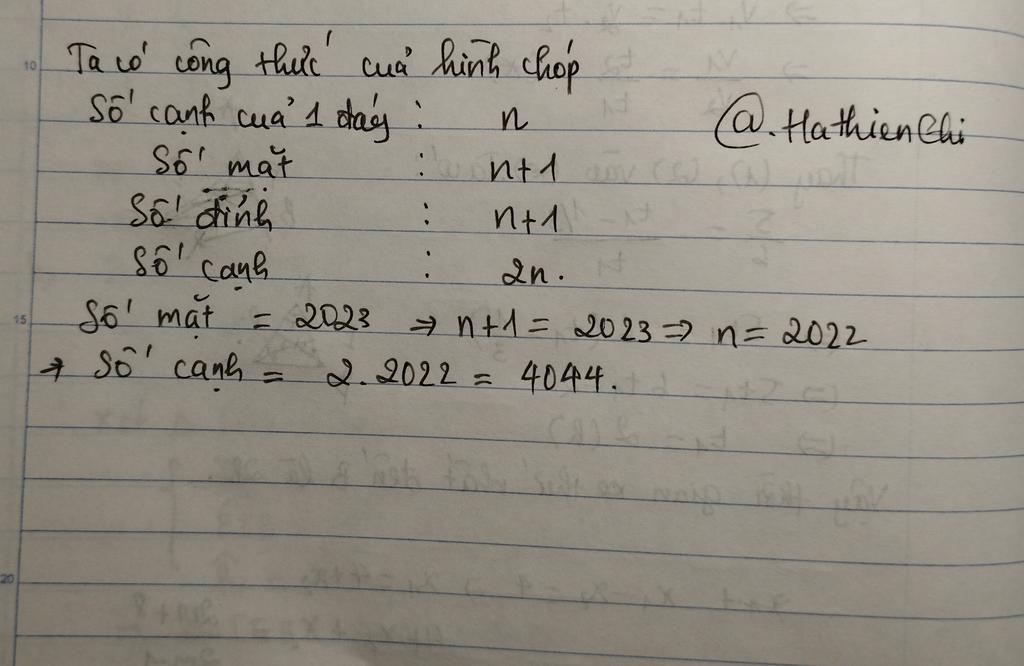 10
Ta có công thức của hình chóp
Số cạnh của 1 đáy : n
@.HathienChi
Số mặt : n+1
Số đỉnh : n+1
Số cạnh : 2n.
15
Số mặt = 2023 ⇒ n+1 = 2023 ⇒ n = 2022
→ Số cạnh = 2.2022 = 4044.
20